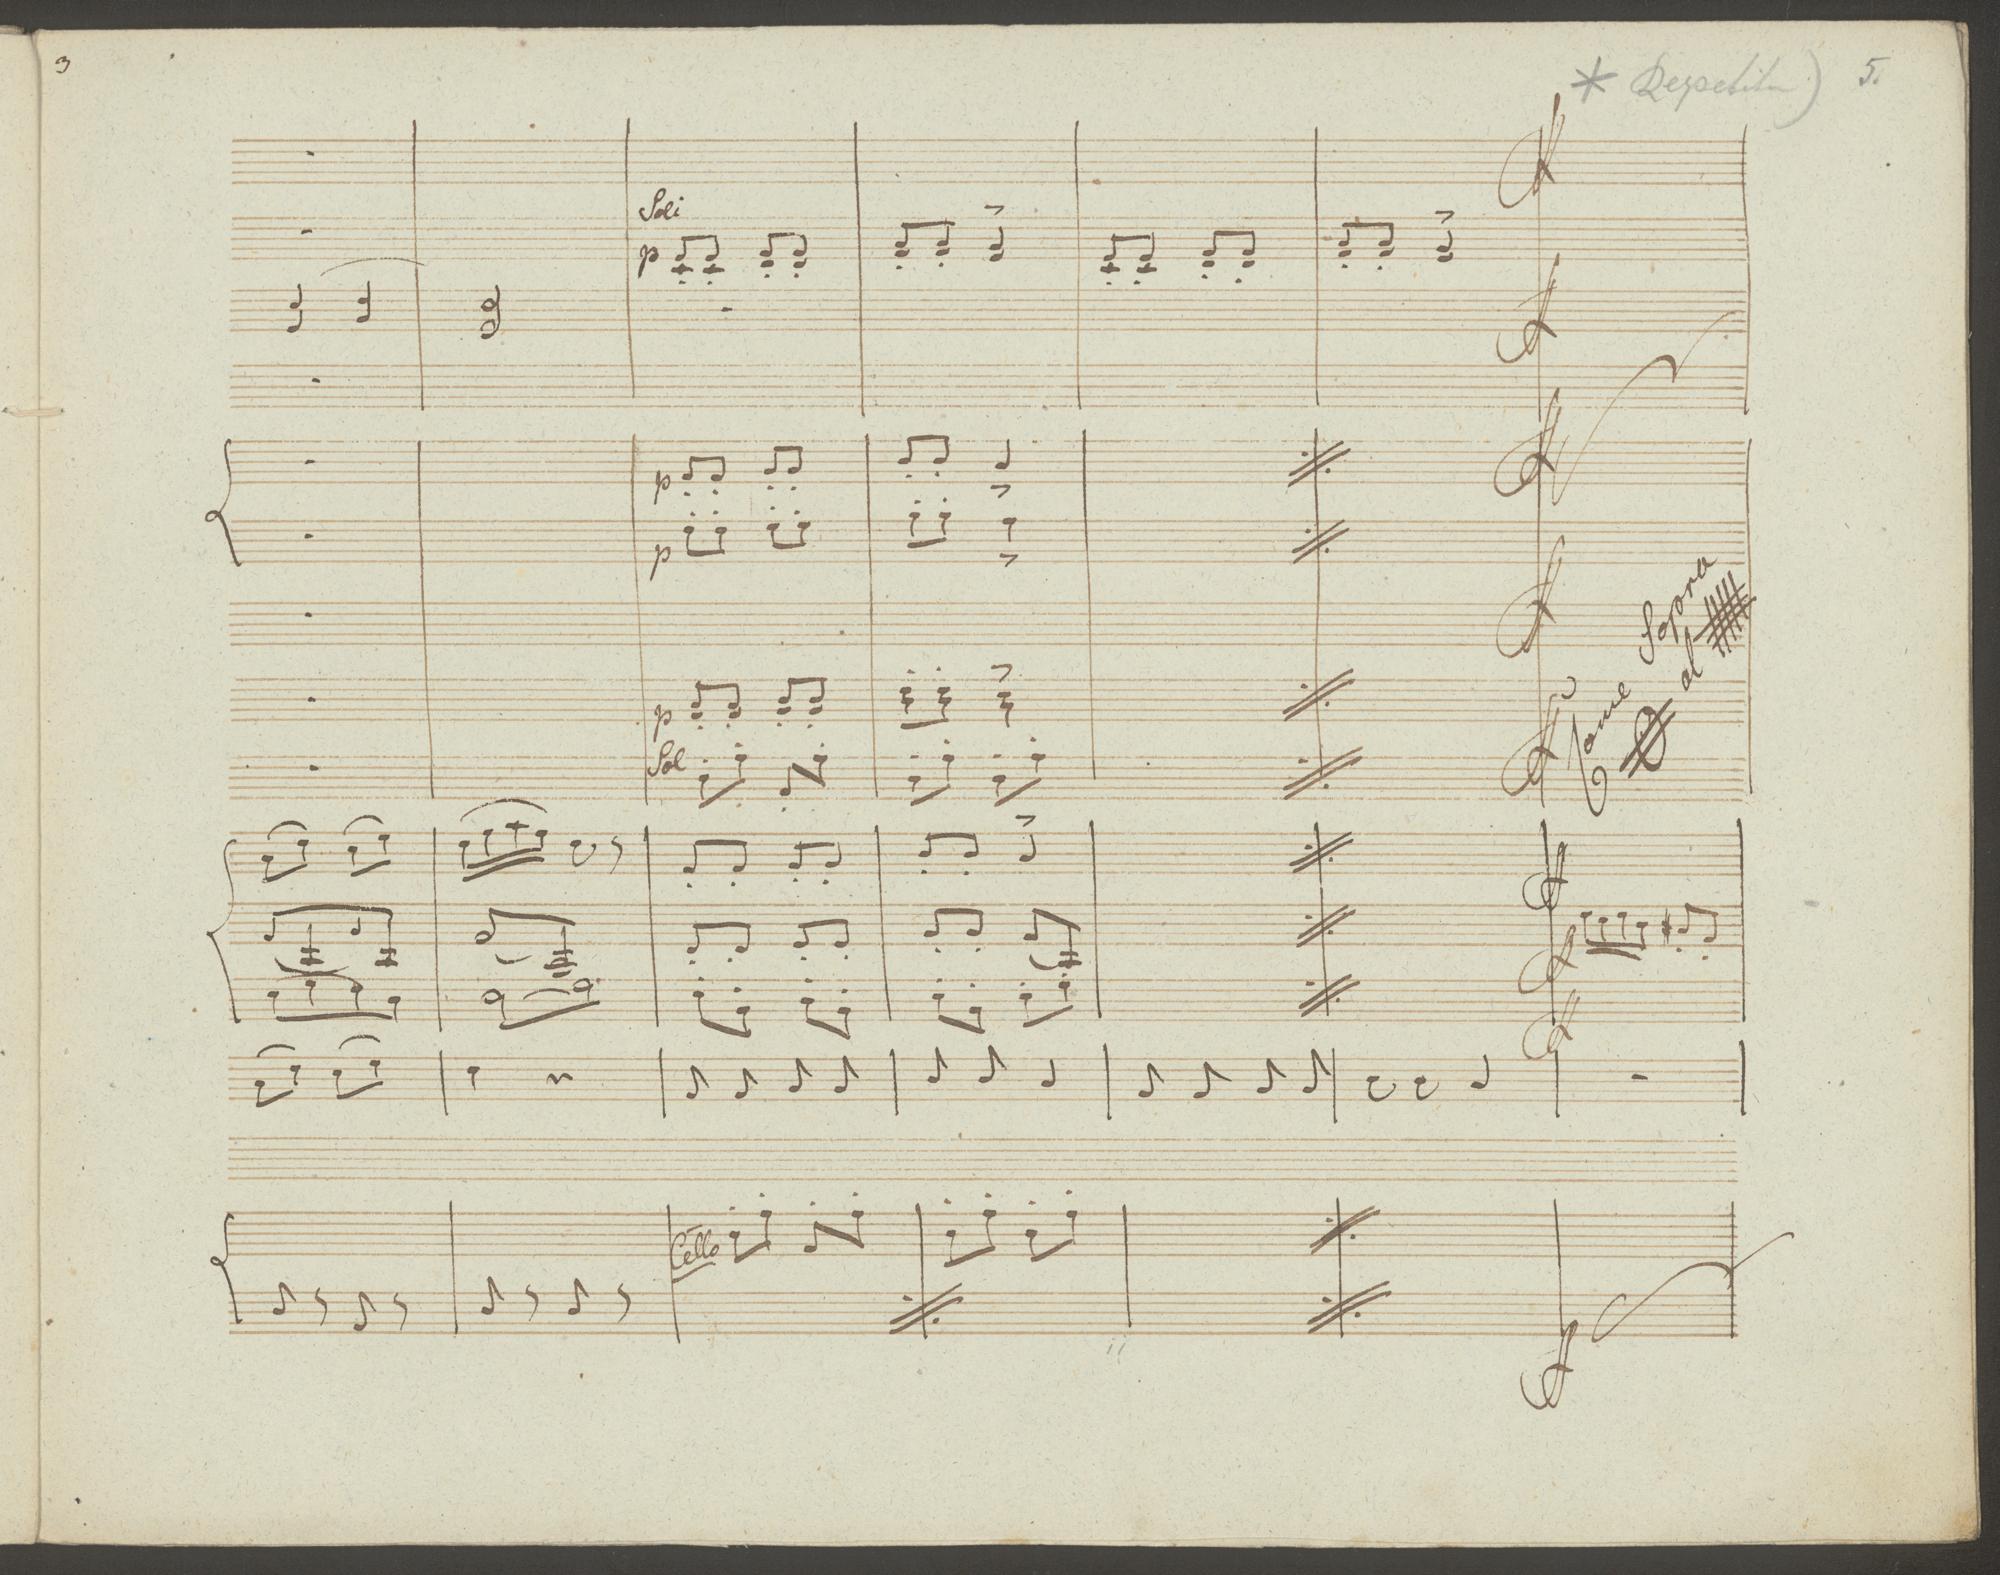 3
5.
Soli
p
p
p
p
Sol
Come Sopra
al
Cello